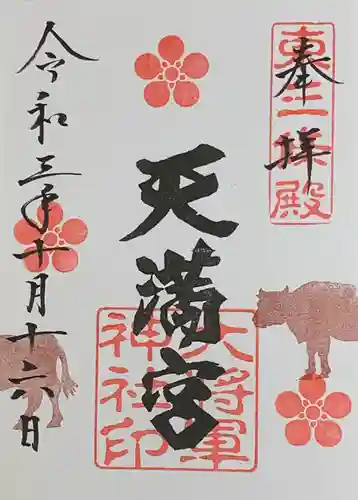 奉拝
東三条殿
天満宮
大将軍
神社印
令和三年十月十六日